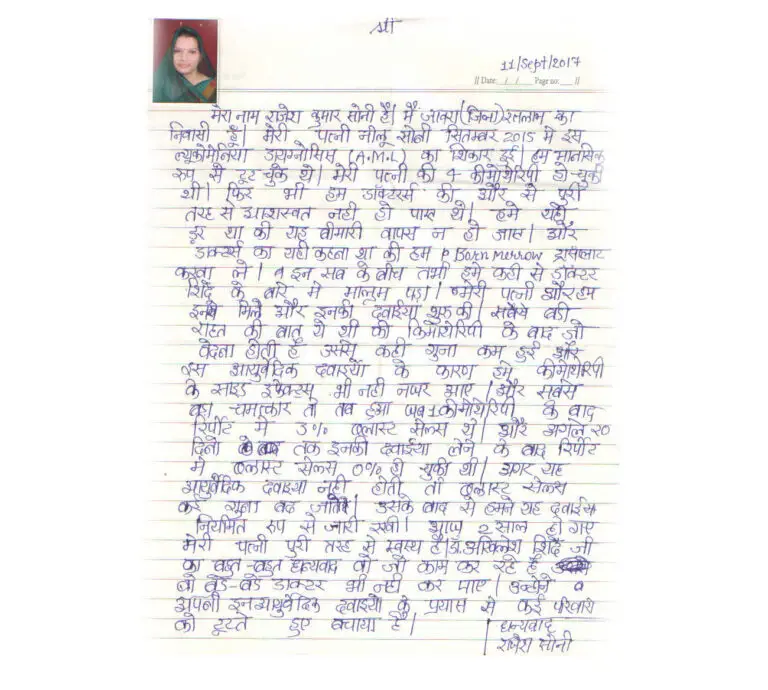 श्री
11/Sept/2017
|| Date: / / Page no: ||
मेरा नाम राजेश कुमार सोनी है। मैं जावरा (जिला) रतलाम का
निवासी हूँ। मेरी पत्नी नीलू सोनी सितम्बर 2015 में इस
ल्यूकोमेनिया डायग्नोसिस (A.M.L) का शिकार हुई। हम मानसिक
रूप से टूट चुके थे। मेरी पत्नी की 4 कीमोथेरिपी हो चुकी
थी। फिर भी हम डॉक्टर्स की और से पुरी
तरह से आशस्वत नही हो पाए थे। हमे यही
डर था की यह बीमारी वापस न हो जाए। और
डाक्टर्स का यही कहना था की हम Born Merrow ट्रांसप्लांट
करवा ले। इन सब के बीच तभी हमे कही से डॉक्टर
शिंदे के बारे मे मालूम पड़ा। मेरी पत्नी और हम
इनसे मिले और इनकी दवाईया शुरू की। सबसे बडी
राहत की बात ये थी की किमोथेरिपी के बाद जो
वेदना होती है उससे कही गुना कम हुई और
इस आयुर्वेदिक दवाइयों के कारण हमे कीमोथेरिपी
के साइड इफेक्ट्स भी नही नजर आए। और सबसे
बड़ा चमत्कार तो तब हुआ जब 1 कीमोथेरिपी के बाद
रिपोर्ट मे 3% ब्लास्ट सेल्स थे। और अगले 20
दिनो तक इनकी दवाईया लेने के बाद रिपोर्ट
मे ब्लास्ट सेल्स 0% हो चुकी थी। अगर यह
आयुर्वेदिक दवाइया नही होती तो ब्लास्ट सेल्स
कई गुना बढ जाते। उसके बाद से हमने यह दवाईया
नियमित रूप से जारी रखी। आज 2 साल हो गए
मेरी पत्नी पुरी तरह से स्वस्थ है। डॉ. अखिलेश शिंदे जी
का बहुत-बहुत धन्यवाद वो जो काम कर रहे है
वो बडे-बडे डाक्टर भी नही कर पाए। उन्होने
अपनी इन आयुर्वेदिक दवाइयो के प्रयास से कई परिवारो
को टूटते हुए बचाया है।
धन्यवाद
राजेश सोनी